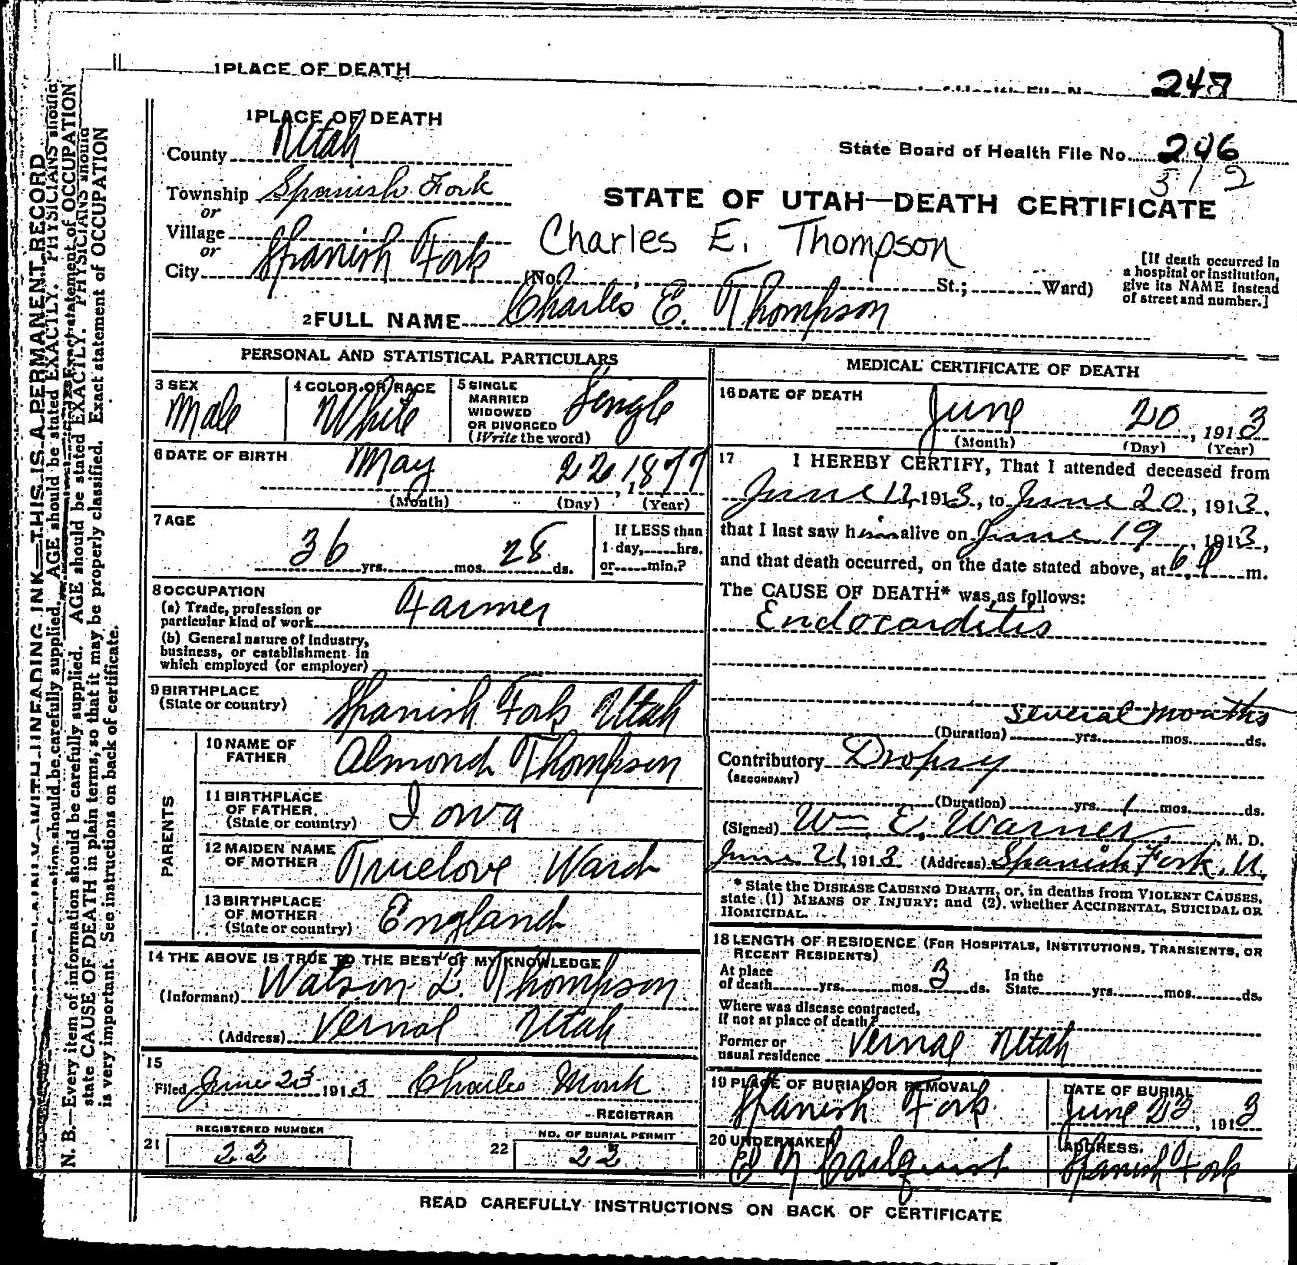 1 PLACE OF DEATH
248
1 PLACE OF DEATH
County Utah
State Board of Health File No. 246
312
Township Spanish Fork
or
Village
or
City Spanish Fork
STATE OF UTAH—DEATH CERTIFICATE
Charles E. Thompson
(No. St.; Ward)
[If death occurred in
a hospital or institution,
give its NAME instead
of street and number.]
2 FULL NAME Charles E. Thompson
PERSONAL AND STATISTICAL PARTICULARS
3 SEX
Male
4 COLOR OR RACE
White
5 SINGLE
MARRIED
WIDOWED
OR DIVORCED
(Write the word)
Single
6 DATE OF BIRTH
May 22, 1877
(Month) (Day) (Year)
7 AGE
36 yrs. mos. 28 ds.
If LESS than
1 day, hrs.
or min.?
8 OCCUPATION
(a) Trade, profession or
particular kind of work Farmer
(b) General nature of Industry,
business, or establishment in
which employed (or employer)
9 BIRTHPLACE
(State or country) Spanish Fork Utah
PARENTS
10 NAME OF
FATHER Almond Thompson
11 BIRTHPLACE
OF FATHER
(State or country) Iowa
12 MAIDEN NAME
OF MOTHER Truelove Ward
13 BIRTHPLACE
OF MOTHER
(State or country) England
14 THE ABOVE IS TRUE TO THE BEST OF MY KNOWLEDGE
(Informant) Watson L. Thompson
(Address) Vernal Utah
15
Filed June 23 1913 Charles Monk
REGISTRAR
21 REGISTERED NUMBER
22
22 NO. OF BURIAL PERMIT
22
MEDICAL CERTIFICATE OF DEATH
16 DATE OF DEATH
June 20, 1913
(Month) (Day) (Year)
17 I HEREBY CERTIFY, That I attended deceased from
June 12, 1913, to June 20, 1913,
that I last saw him alive on June 19, 1913,
and that death occurred, on the date stated above, at 6 P m.
The CAUSE OF DEATH* was as follows:
Endocarditis
several months
(Duration) yrs. mos. ds.
Contributory Dropsy
(SECONDARY)
(Duration) yrs. 1 mos. ds.
(Signed) Wm E. Warner, M. D.
June 21, 1913 (Address) Spanish Fork, U.
* State the DISEASE CAUSING DEATH, or, in deaths from VIOLENT CAUSES,
state (1) MEANS OF INJURY; and (2) whether ACCIDENTAL, SUICIDAL OR
HOMICIDAL.
18 LENGTH OF RESIDENCE (FOR HOSPITALS, INSTITUTIONS, TRANSIENTS, OR
RECENT RESIDENTS)
At place
of death yrs. mos. 3 ds.
In the
State yrs. mos. ds.
Where was disease contracted,
if not at place of death?
Former or
usual residence Vernal Utah
19 PLACE OF BURIAL OR REMOVAL
Spanish Fork
DATE OF BURIAL
June 23, 1913
20 UNDERTAKER
ADDRESS
Spanish Fork
READ CAREFULLY INSTRUCTIONS ON BACK OF CERTIFICATE
N. B.—Every item of information should be carefully supplied. AGE should be stated EXACTLY. PHYSICIANS should
state CAUSE OF DEATH in plain terms, so that it may be properly classified. Exact statement of OCCUPATION
is very important. See instructions on back of certificate.
WITH UNFADING INK—THIS IS A PERMANENT RECORD